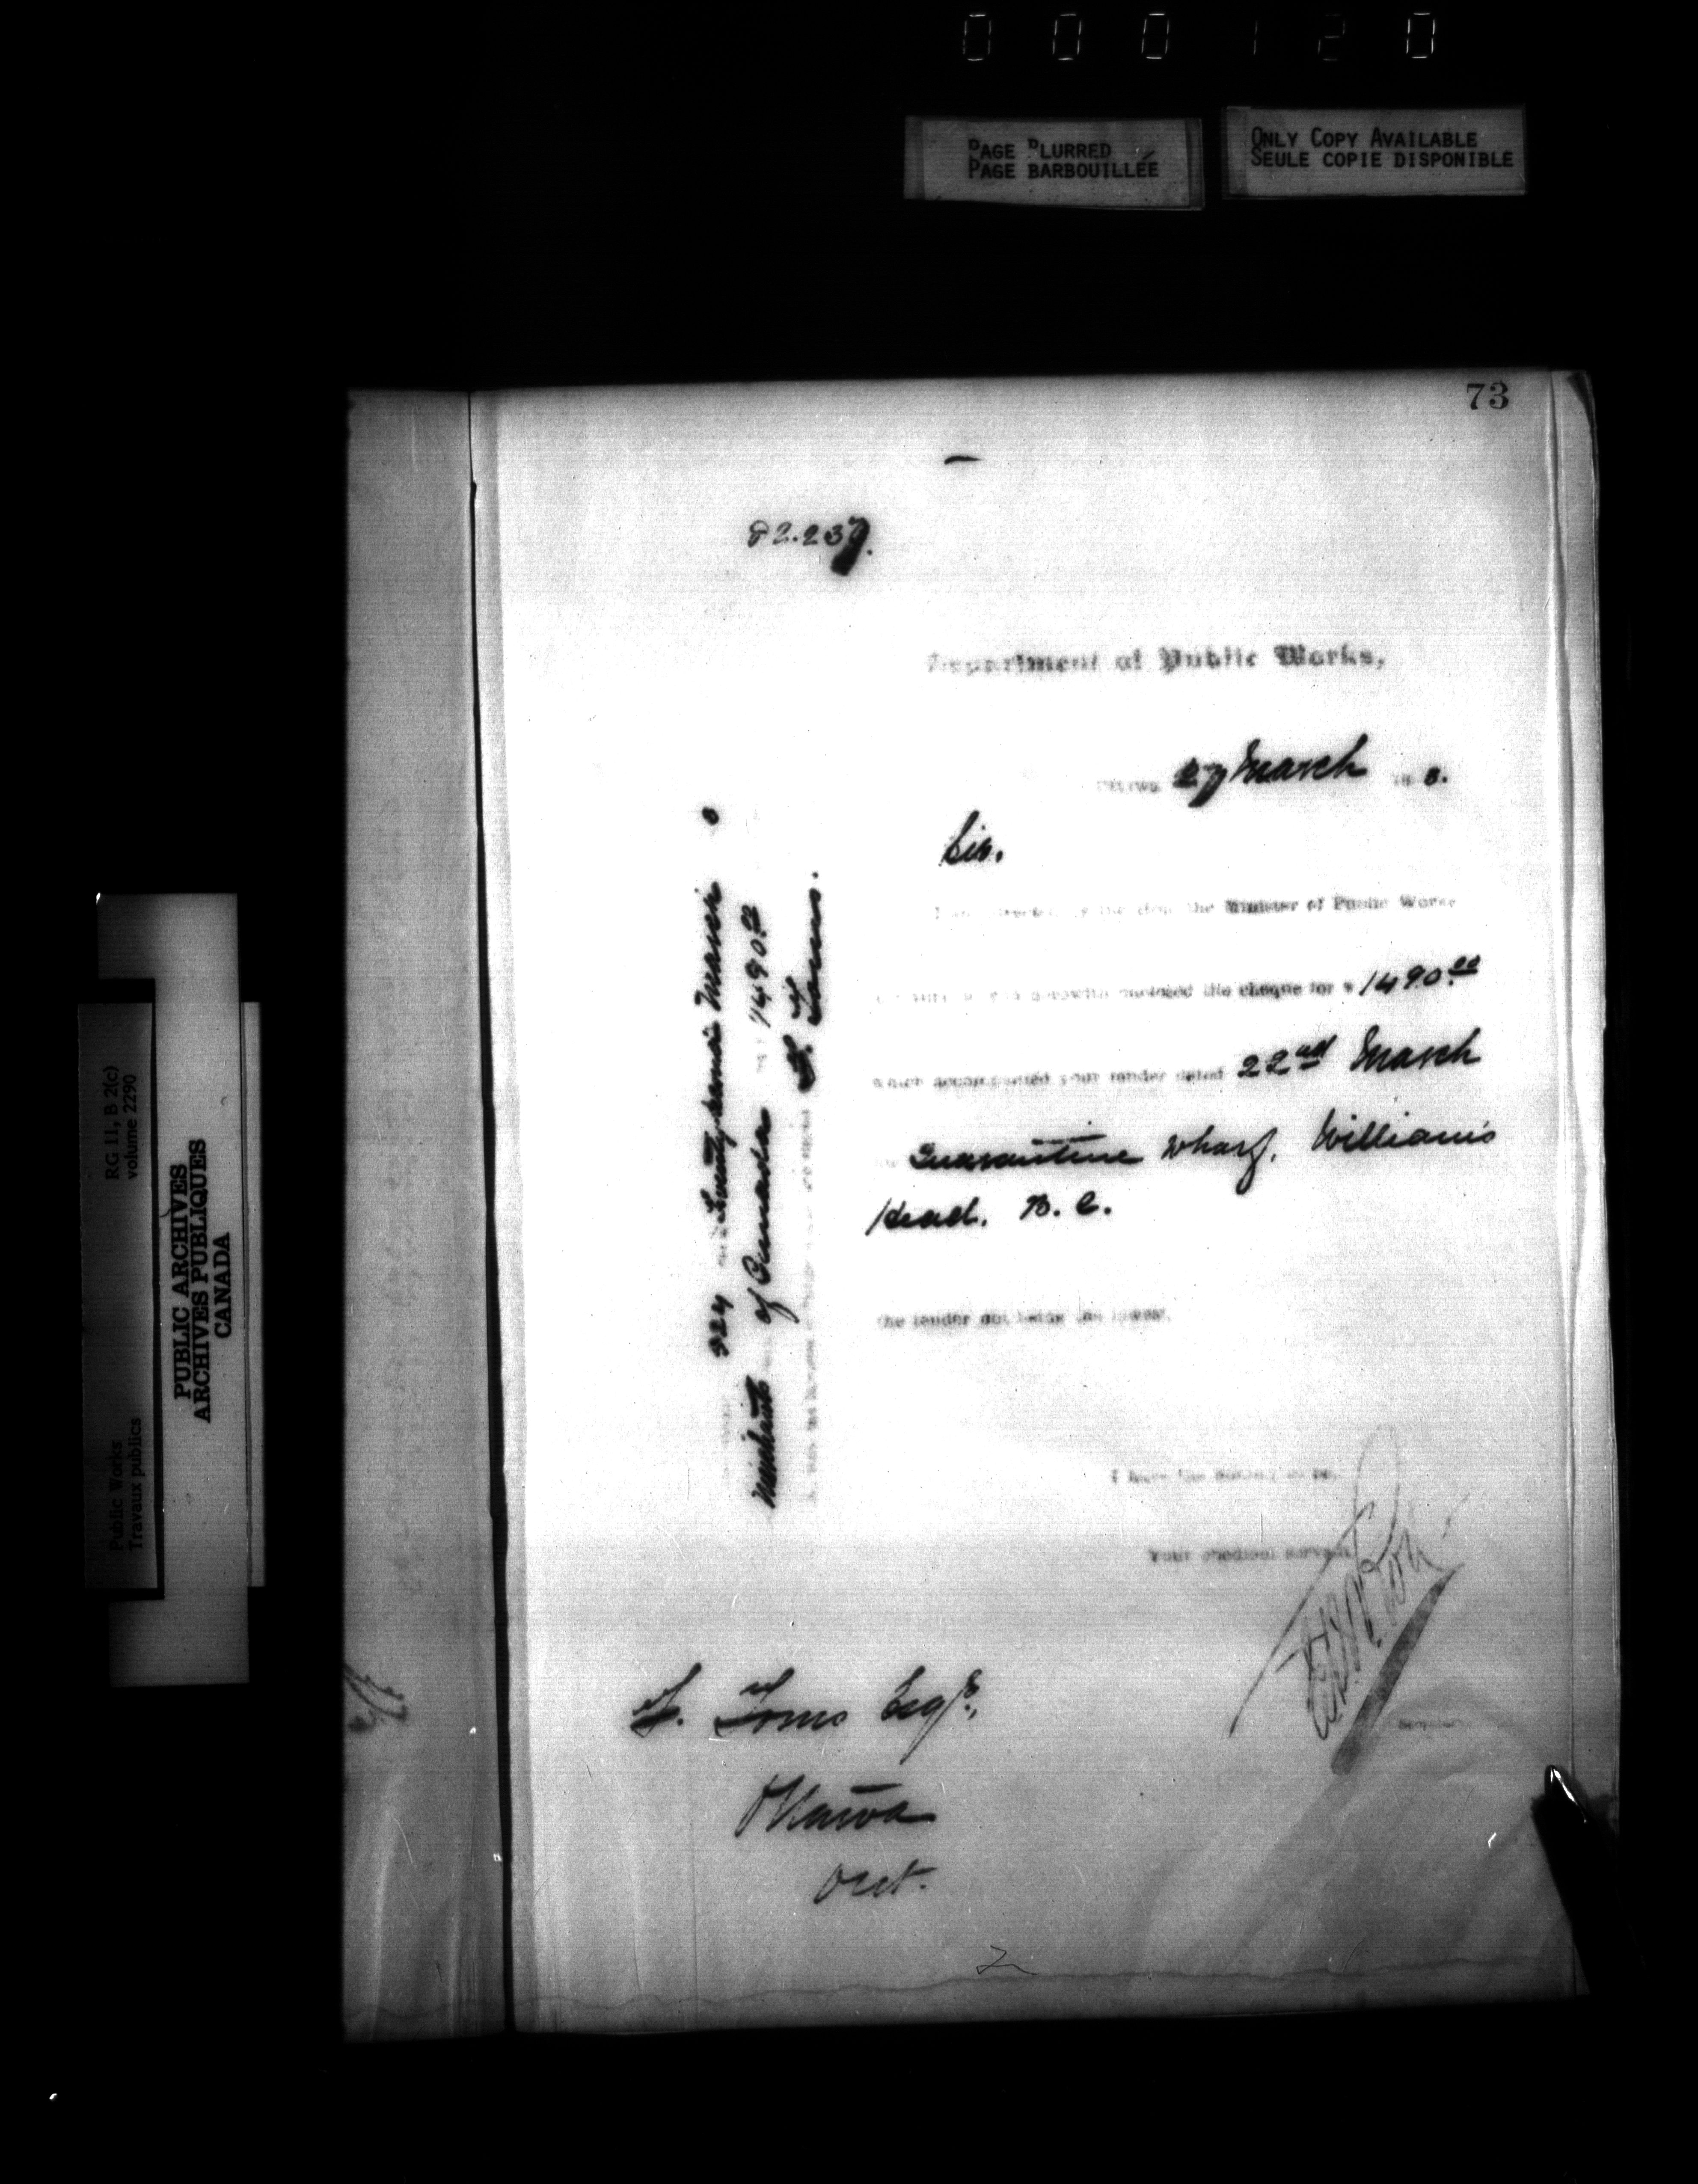 000120
PAGE BLURRED
PAGE BARBOUILLÉE
ONLY COPY AVAILABLE
SEULE COPIE DISPONIBLE
73
82.237.
Department of Public Works,
Ottawa 27 March 18 3.
Sir.
I am directed by the Hon. the Minister of Public Works
herewith enclosed the cheque for $ 1490.00
which accompanied your tender dated 22nd March
Quarantine Wharf, William's
Head. B. C.
the tender not being the lowest.
I have the honour to be,
Your obedient servant
Secretary.
T. Toms Esqr.,
Ottawa
Ont.
924 Twenty second March
Merchants of Canada 1490.00
T. Toms.
RG 11, B 2(c)
volume 2290
Public Works
Travaux publics
PUBLIC ARCHIVES
ARCHIVES PUBLIQUES
CANADA